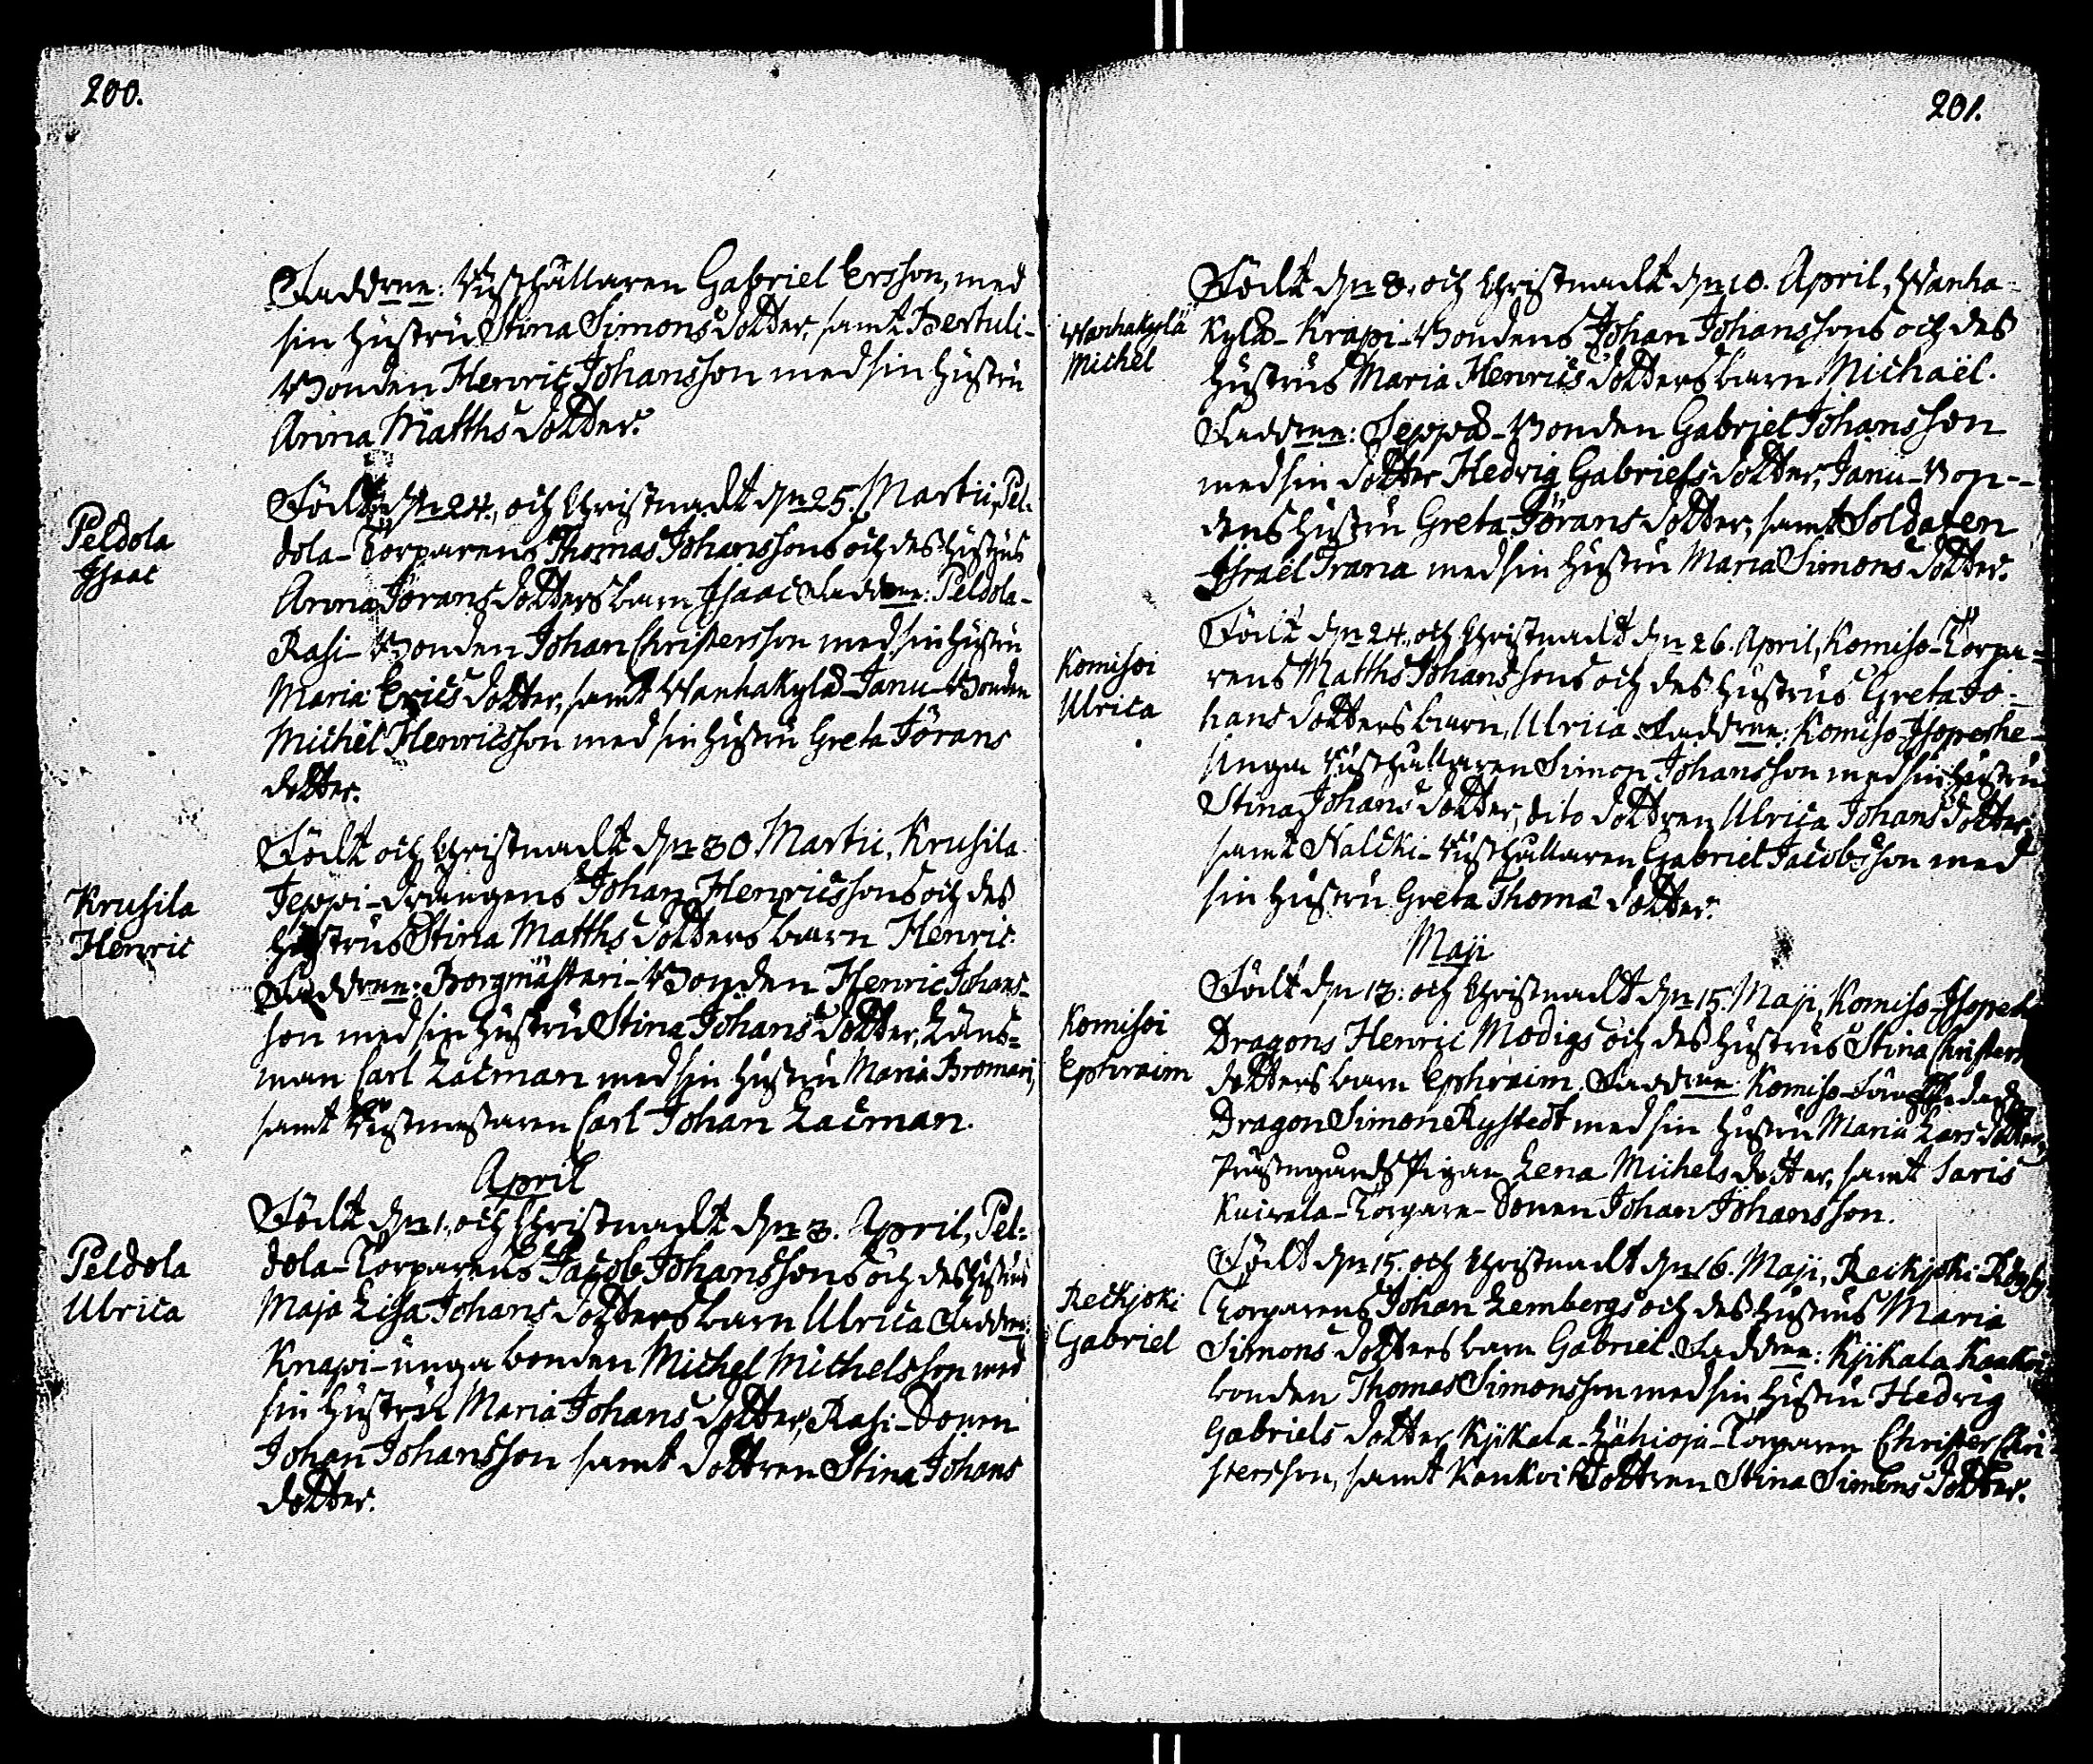 200.
Faddrne: Rusthållaren Gabriel Ersson, med
sin hustru Stina Simonsdotter, samt Bertuli-
Bonden Henric Johansson med sin hustru
Anna Matthsdotter.
Peldola
Isaac
Född d. 24. och Christnadt d. 25. Martii, Pel-
dola-Torparens Thomas Johanssons och des hustrus
Anna Jöransdotters barn Isaac. Faddrne: Peldola-
Rasi-Bonden Johan Christersson med sin hustru
Maria Ericsdotter, samt Wanhakylä-Janu-Bonden
Michel Henricsson med sin hustru Greta Jörans
dotter.
Krusila
Henric
Född och Christnadt d. 30 Martii, Krusila
Jeppi-drängens Johan Henricssons och des
hustrus Stina Matthsdotters barn Henric.
Faddrne: Borgmästeri-Bonden Henric Johans-
son med sin hustru Stina Johansdotter, Läns-
man Carl Lacman med sin hustru Maria Bromari,
samt Carl Johan Lacman.
April
Peldola
Ulrica
Född d. 1. och Christnadt d. 3. April, Pel-
dola-Torparens Jacob Johanssons och des hustrus
Maja Lisa Johansdotters barn Ulrica. Faddrne:
Knapi-unga bonden Michel Michelsson med
sin hustru Maria Johansdotter, Rasi-Sonen
Johan Johansson samt dottren Stina Johans
dotter.
201.
Wanhakylä
Michel
Född d. 8. och Christnadt d. 10. April, Wanha-
kylä-Krapi-Bondens Johan Johanssons och des
hustrus Maria Henricsdotters barn Michaël.
Faddrne: Seppä-Bonden Gabriel Johansson
med sin dotter Hedvig Gabrielsdotter, Janu-Bon-
dens hustru Greta Jöransdotter, samt Soldaten
Israël Trana med sin hustru Maria Simonsdotter.
Komisoi
Ulrica
Född d. 24. och Christnadt d. 26. April, Komiso-Torpa-
rens Matths Johanssons och des hustrus Greta Jo-
hansdotters barn, Ulrica. Faddrne: Komiso-Isopeshe-
Unga Rusthållaren Simon Johansson med sin hustru
Stina Johansdotter, dito dottren Ulrica Johansdotter,
samt Nalcki-Rusthållaren Gabriel Jacobsson med
sin hustru Greta Thomædotter.
Maji
Komisoi
Ephraim
Född d. 13. och Christnadt d. 15. Maji, Komiso-
Dragons Henric Modigs och des hustrus Stina Christers
dotters barn Ephraim. Faddrne: Komiso-
Dragon Simon Rystedt med sin hustru Maria Larsdotter,
Prästgårds Pigan Lena Michelsdotter, samt Saris
Kuivela-Torpare-Sonen Johan Johansson.
Reckjoki
Gabriel
Född d. 15. och Christnadt d. 16. Maji, Reckjoki
Torparens Johan Lembergs och des hustrus Maria
Simonsdotters barn Gabriel. Faddrne: Kjikala Kankoi
bonden Thomas Simonsson med sin hustru Hedvig
Gabrielsdotter, Kjikala-Lähioja-Torparen Christer Chri-
stersson, samt dottren Stina Simonsdotter.